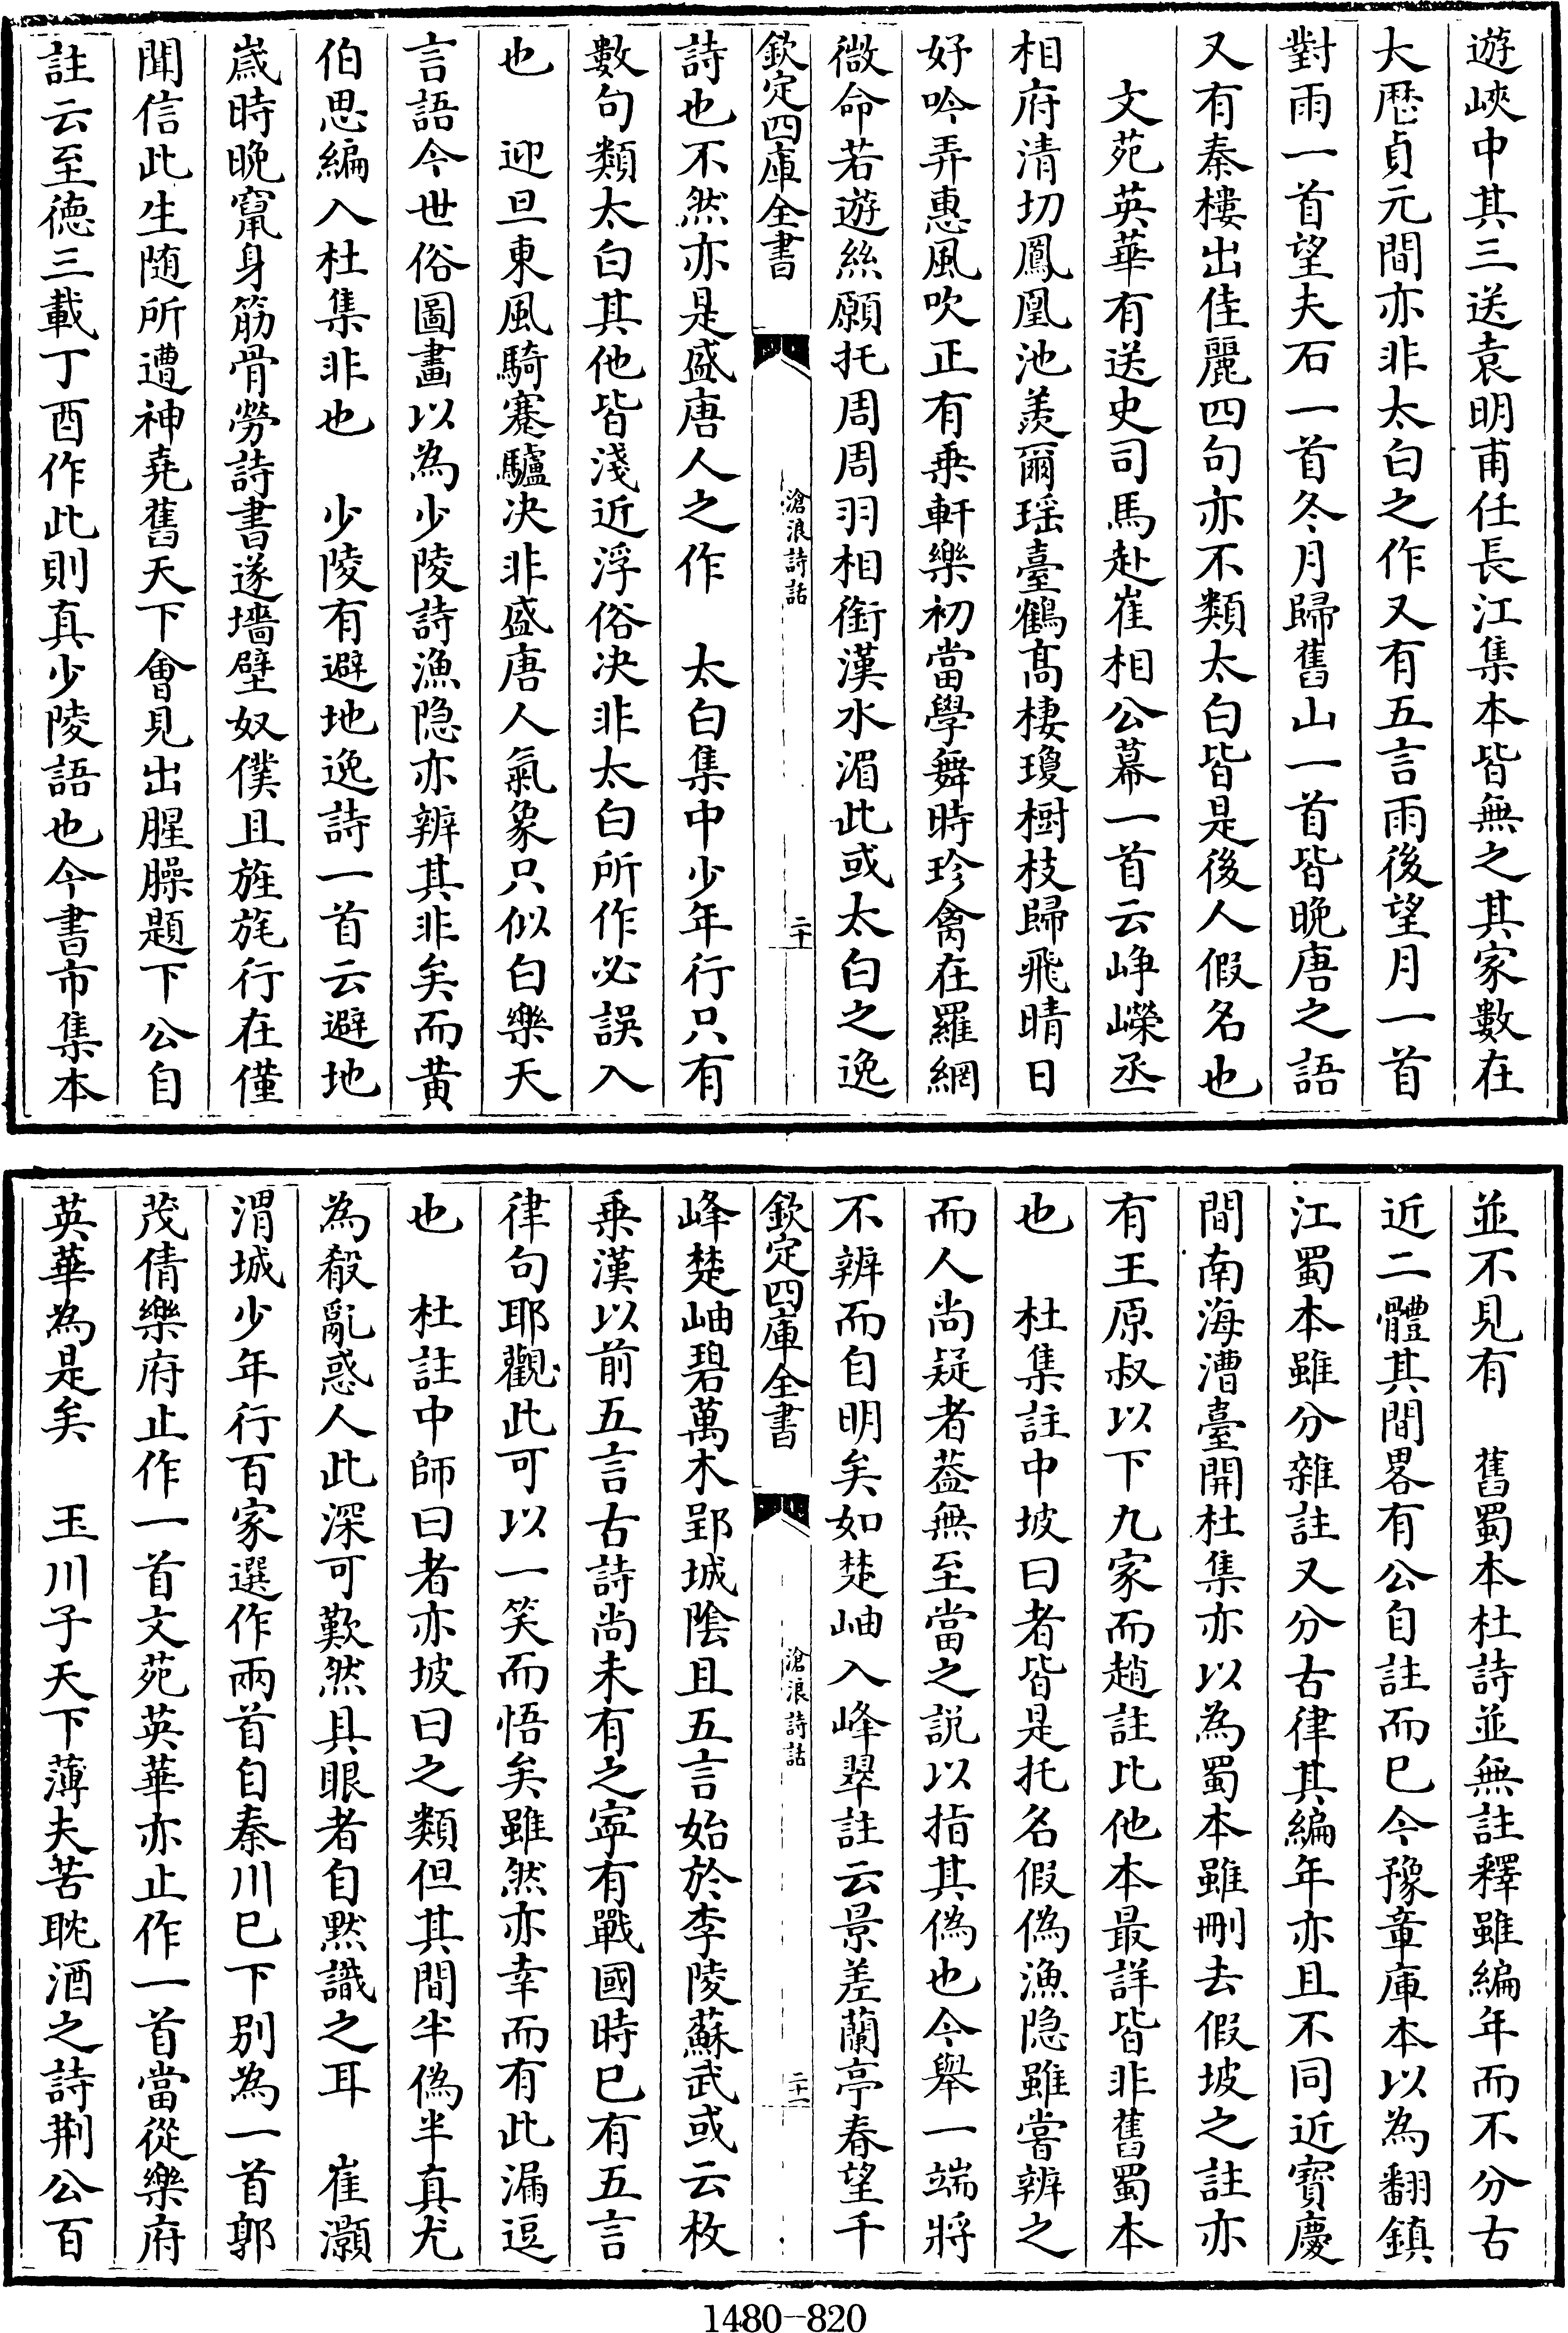 遊峽中其三送袁明甫任長江集本皆無之其家數在
大歴貞元間亦非太白之作又有五言雨後望月一首
對雨一首望夫石一首冬月歸舊山一首皆晚唐之語
又有秦樓出佳麗四句亦不類太白皆是後人假名也
文苑英華有送史司馬赴崔相公幕一首云崢嶸丞
相府清切鳳凰池羨爾瑶臺鶴髙棲瓊樹枝歸飛晴日
好吟弄惠風吹正有乗軒樂初當學舞時珍禽在羅網
微命若遊絲願托周周羽相銜漢水湄此或太白之逸
欽定四庫全書
滄浪詩話
二十
詩也不然亦是盛唐人之作　太白集中少年行只有
數句類太白其他皆淺近浮俗决非太白所作必誤入
也　迎旦東風騎蹇驢决非盛唐人氣象只似白樂天
言語今世俗圖畫以為少陵詩漁隐亦辨其非矣而黄
伯思編入杜集非也　少陵有避地逸詩一首云避地
嵗時晚竄身筋骨勞詩書遂墻壁奴僕且旌旄行在僅
聞信此生随所遭神尭舊天下會見出腥臊題下公自
註云至徳三載丁酉作此則真少陵語也今書市集本
並不見有　舊蜀本杜詩並無註釋雖編年而不分古
近二體其間畧有公自註而已今豫章庫本以為翻鎮
江蜀本雖分雜註又分古律其編年亦且不同近寳慶
間南海漕臺開杜集亦以為蜀本雖刪去假坡之註亦
有王原叔以下九家而趙註比他本最詳皆非舊蜀本
也　杜集註中坡曰者皆是托名假偽漁隐雖嘗辨之
而人尚疑者葢無至當之説以指其偽也今舉一端將
不辨而自明矣如楚岫入峰翠註云景差蘭亭春望千
欽定四庫全書
滄浪詩話
二十一
峰楚岫碧萬木郢城隂且五言始於李陵蘇武或云枚
乗漢以前五言古詩尚未有之寧有戰國時已有五言
律句耶觀此可以一笑而悟矣雖然亦幸而有此漏逗
也　杜註中師曰者亦坡曰之類但其間半偽半真尤
為殽亂惑人此深可歎然具眼者自黙識之耳　崔灝
渭城少年行百家選作兩首自秦川已下别為一首郭
茂倩樂府止作一首文苑英華亦止作一首當從樂府
英華為是矣　玉川子天下薄夫苦耽酒之詩荆公百
1480-820